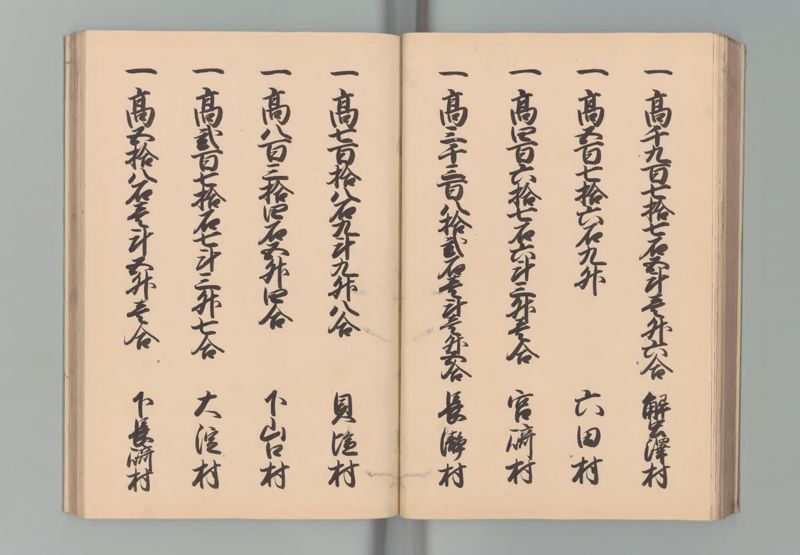 一 高千九百七拾七石五斗壱升六合 解生澤村
一 高五百七拾六石九升 六田村
一 高四百六拾七石六斗三升壱合 宮崎村
一 高三千三百八拾弐石壱斗壱升五合 長瀞村
一 高七百拾八石九斗九升八合 貝塩村
一 高八百三拾四石五升四合 下山口村
一 高弐百七拾石七斗三升七合 大淀村
一 高五拾八石壱斗五升壱合 下長崎村